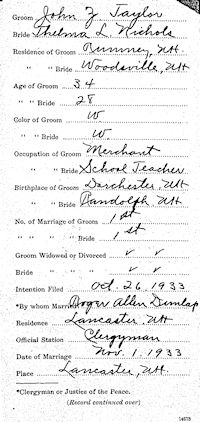 Groom John Z Taylor
Bride Thelma L. Nichols
Residence of Groom Rumney, NH.
" " Bride Woodsville, NH
Age of Groom 34
" " Bride 28
Color of Groom W
" " Bride W.
Occupation of Groom Merchant
" " Bride School Teacher
Birthplace of Groom Dorchester, NH
" " Bride Randolph NH
No. of Marriage of Groom 1st
" " " " Bride 1st
Groom Widowed or Divorced ✓ ✓
Bride " " " ✓ ✓
Intention Filed Oct. 26, 1933
*By whom Married Roger Allen Dunlap
Residence Lancaster, NH
Official Station Clergyman
Date of Marriage Nov. 1, 1933
Place Lancaster, NH.
*Clergyman or Justice of the Peace.
(Record continued over)